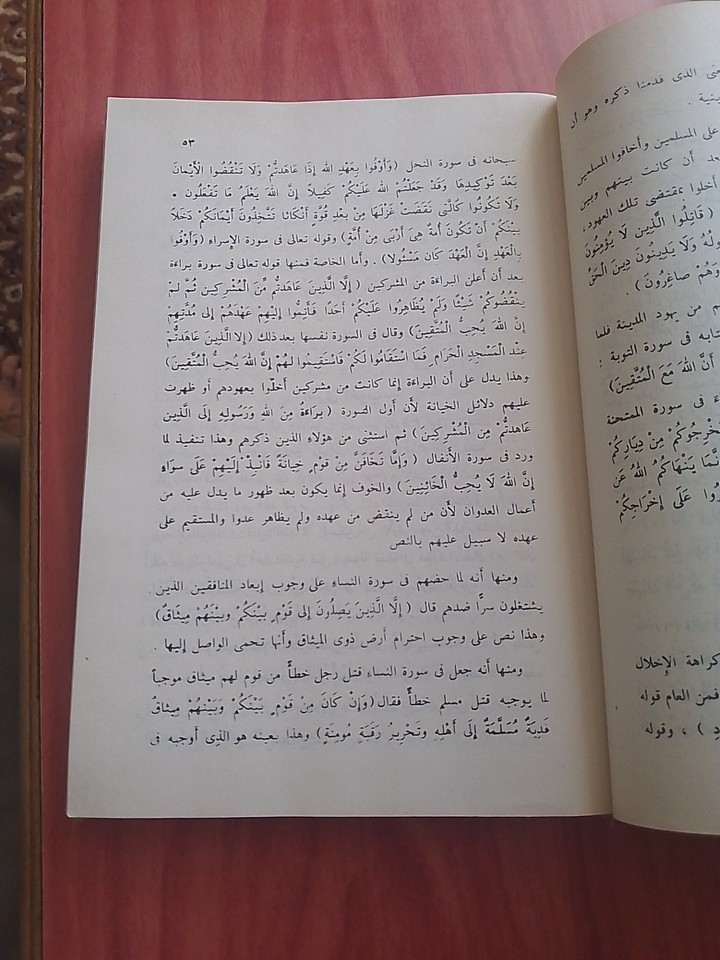 عنى الذى قدمنا ذكره وهو أن
ينية .
على المسلمين وأخافوا المسلمين
بعد أن كانت بينهم وبين
أخلوا بمقتضى تلك العهود،
( قَاتِلُوا الَّذِينَ لَا يُؤْمِنُونَ
ولُهُ وَلَا يَدِينُونَ دِينَ الْحَقِّ
وَهُمْ صَاغِرُونَ ) .
م من يهود المدينة فلما
تابه فى سورة التوبة :
أَنَّ اللهَ مَعَ الْمُتَّقِينَ)
ء فى سورة الممتحنة
تُخْرِجُوكُمْ مِنْ دِيَارِكُمْ
نَّمَا يَنْهَاكُمُ اللهُ عَنِ
رُوا عَلَى إِخْرَاجِكُمْ
كراهة الإخلال
فمن العام قوله
دِ ) ، وقوله
٥٣
سبحانه فى سورة النحل (وَأَوْفُوا بِعَهْدِ اللهِ إِذَا عَاهَدتُّمْ وَلَا تَنْقُضُوا الْأَيْمَانَ
بَعْدَ تَوْكِيدِهَا وَقَدْ جَعَلْتُمُ الله عَلَيْكُمْ كَفِيلاً إِنَّ اللهَ يَعْلَمُ مَا تَفْعَلُونَ .
وَلَا تَكُونُوا كَالَّتِى نَقَضَتْ غَزْلَهَا مِنْ بَعْدِ قُوَّةٍ أَنْكَاثًا تَتَّخِذُونَ أَيْمَانَكُمْ دَخَلاً
بَيْنَكُمْ أَنْ تَكُونَ أُمةٌ هِىَ أَرْبَى مِنْ أُمَّةٍ) وقوله تعالى فى سورة الإسراء (وَأَوْفُوا
بِالْعَهْدِ إِنَّ الْعَهْدَ كَانَ مَسْئُولا) . وأما الخاصة فمنها قوله تعالى فى سورة براءة
بعد أن أعلن البراءة من المشركين (إِلَّا الَّذِينَ عَاهَدتُّم مِّنَ الْمُشْرِكِينَ ثُمَّ لَمْ
يَنْقُصُوكُمْ شَيْئًا وَلَمْ يُظَاهِرُوا عَلَيْكُمْ أَحَدًا فَأَتِمُّوا إِلَيْهِمْ عَهْدَهُمْ إِلى مُدَّتِهِمْ
إِنَّ اللهَ يُحِبُّ الْمُتَّقِينَ) وقال فى السورة نفسها بعد ذلك (إِلَّا الَّذِينَ عَاهَدتُّمْ
عِنْدَ الْمَسْجِدِ الْحَرَامِ فَمَا اسْتَقَامُوا لَكُمْ فَاسْتَقِيمُوا لَهُمْ إِنَّ اللهَ يُحِبُّ الْمُتَّقِينَ)
وهذا يدل على أن البراءة إنما كانت من مشركين أخلّوا بعهودهم أو ظهرت
عليهم دلائل الخيانة لأن أول السورة (بَراءَةٌ مِنَ اللهِ وَرَسُولِهِ إِلَى الَّذِينَ
عَاهَدتُّمْ مِنَ الْمُشْرِكِينَ) ثم استثنى من هؤلاء الذين ذكرهم وهذا تنفيذ لما
ورد فى سورة الأنفال (وَإِمَّا تَخَافَنَّ مِنْ قَوْمٍ خِيَانَةً فَانْبِذْ إِلَيْهِمْ عَلَى سَوَاءٍ
إِنَّ اللهَ لَا يُحِبُّ الْخَائِنِينَ) والخوف إنما يكون بعد ظهور ما يدل عليه من
أعمال العدوان لأن من لم ينتقض من عهده ولم يظاهر عدوا والمستقيم على
عهده لا سبيل عليهم بالنص
ومنها أنه لما حضهم فى سورة النساء على وجوب إبعاد المنافقين الذين
يشتغلون سراً ضدهم قال ( إِلَّا الَّذِينَ يَصِلُونَ إِلَى قَوْمٍ بَيْنَكُمْ وبيْنَهُمْ مِيثَاقٌ)
وهذا نص على وجوب احترام أرض ذوى الميثاق وأنها تحمى الواصل إليها .
ومنها أنه جعل فى سورة النساء قتل رجل خطأً من قوم لهم ميثاق موجباً
لما يوجبه قتل مسلم خطأً فقال (وَإِنْ كَانَ مِنْ قَوْمٍ بَيْنَكُمْ وَبَيْنَهُمْ مِيثَاقٌ
فَدِيَةٌ مُسَلَّمَةٌ إِلَى أَهْلِهِ وتَحْرِيرُ رَقَبَةٍ مُومِنَةٍ) وهذا بعينه هو الذى أوجبه فى